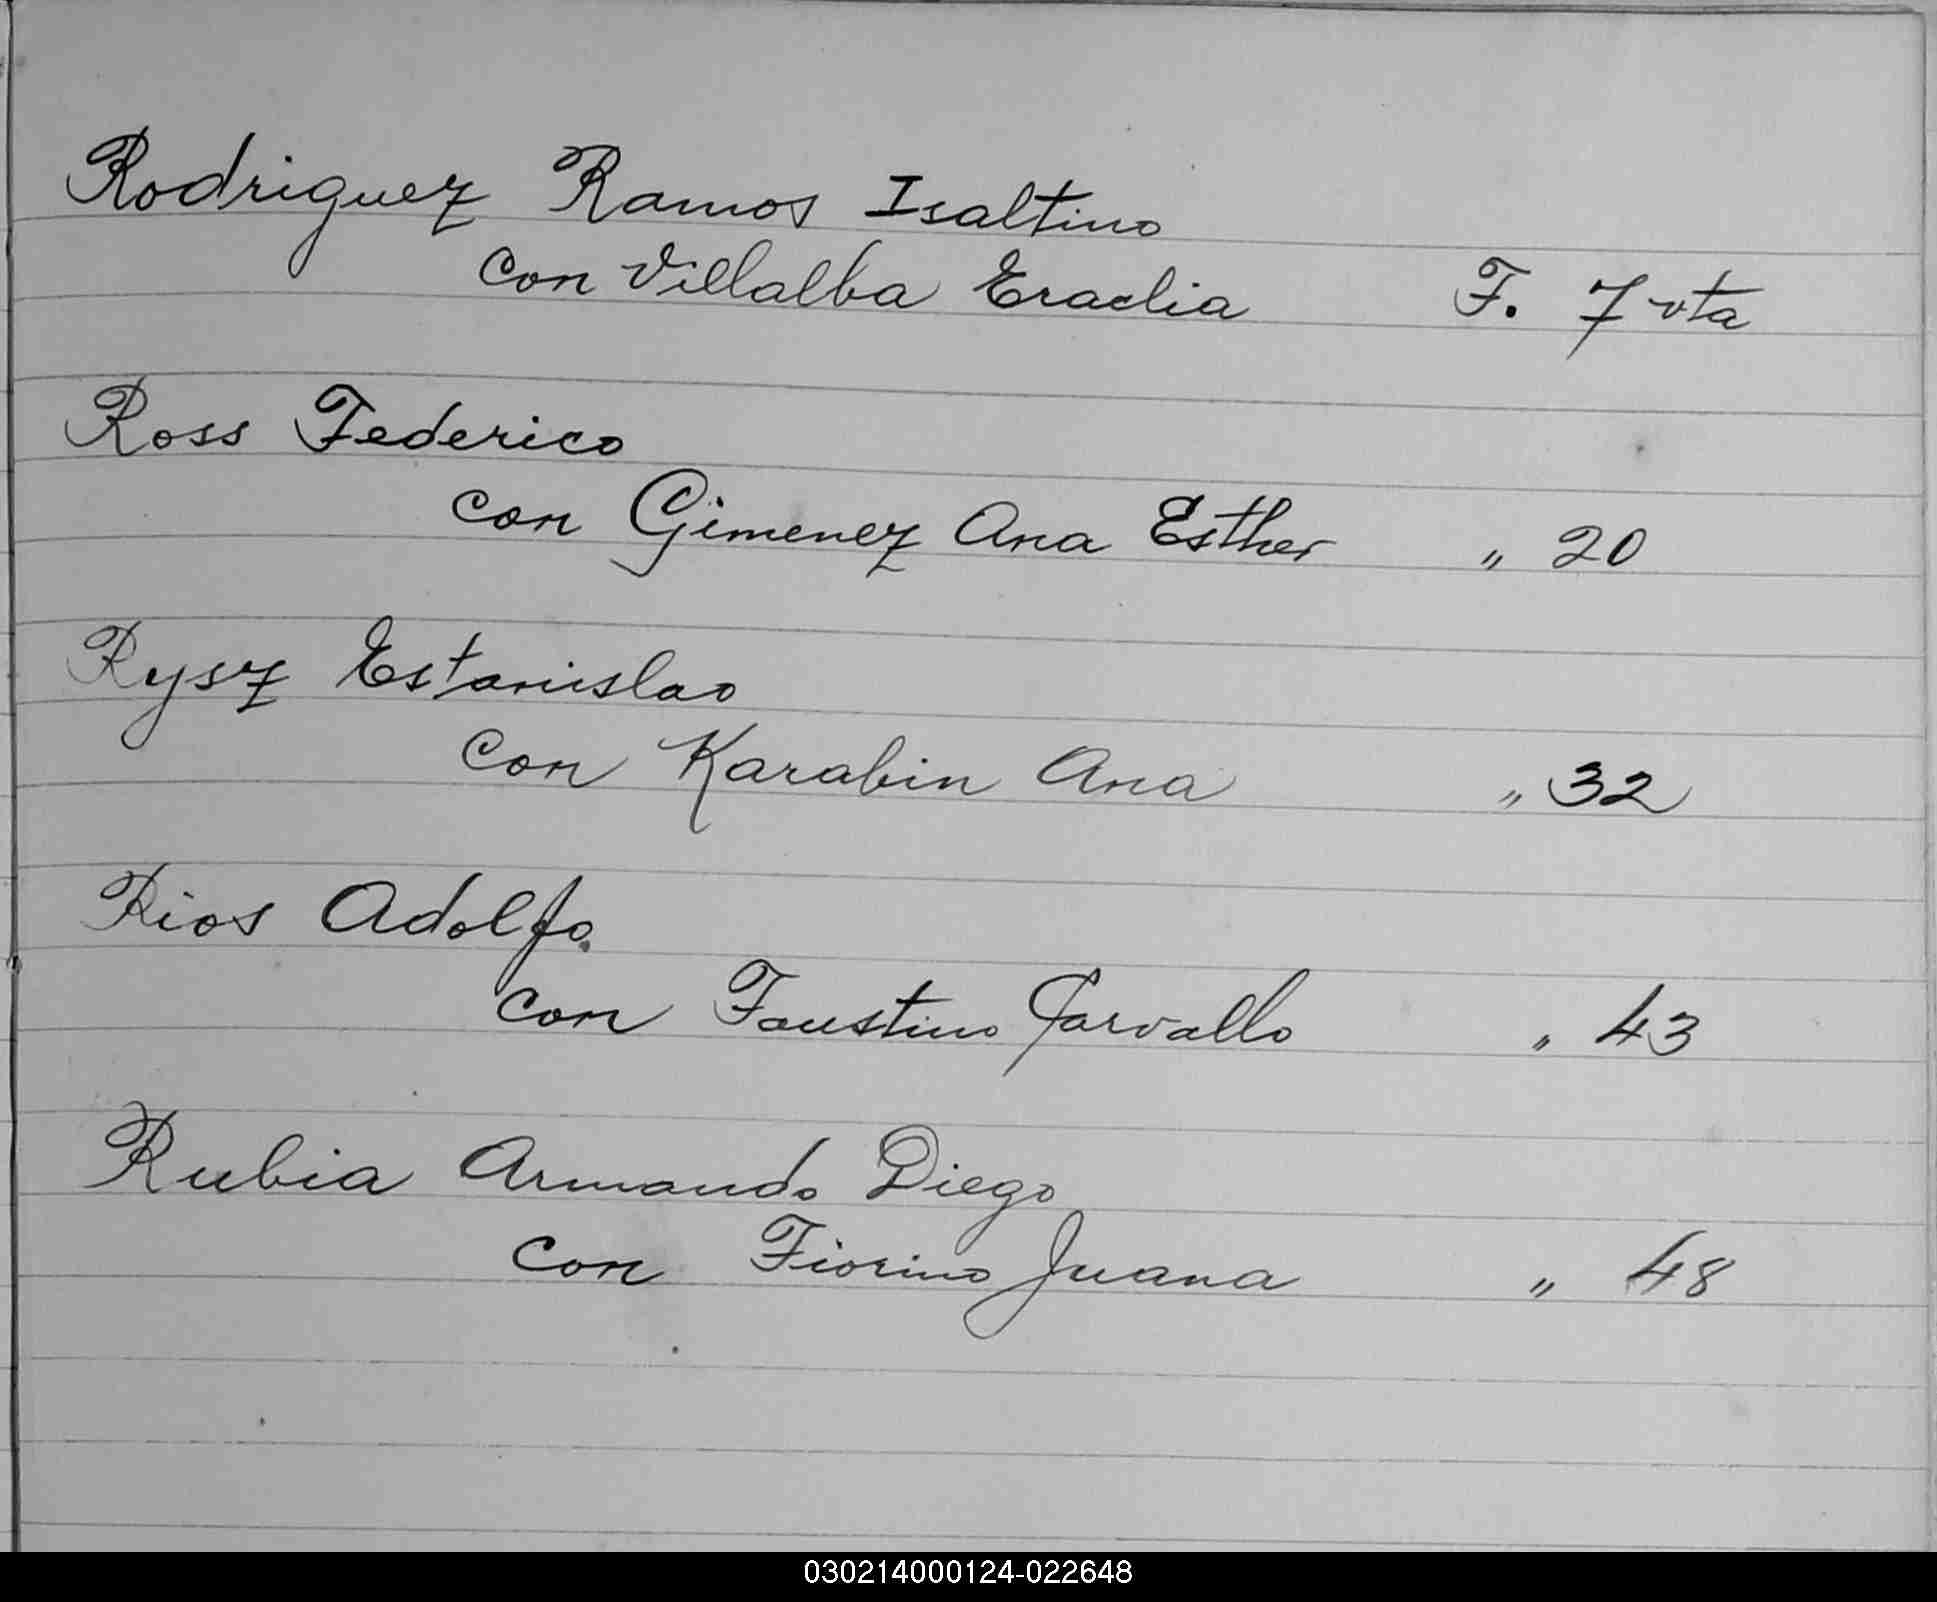 Rodriguez Ramos Isaltino
con Villalba Eraclia F. 7 vta
Ross Federico
con Gimenez Ana Esther " 20
Rysz Estanislao
con Karabin Ana " 32
Rios Adolfo
con Faustino Carvallo " 43
Rubia Armando Diego
con Fiorino Juana " 48
030214000124-022648